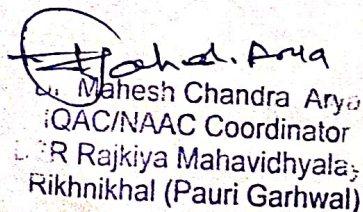 Mahesh Chandra Arya
IQAC/NAAC Coordinator
R Rajkiya Mahavidhyalay
Rikhnikhal (Pauri Garhwal)